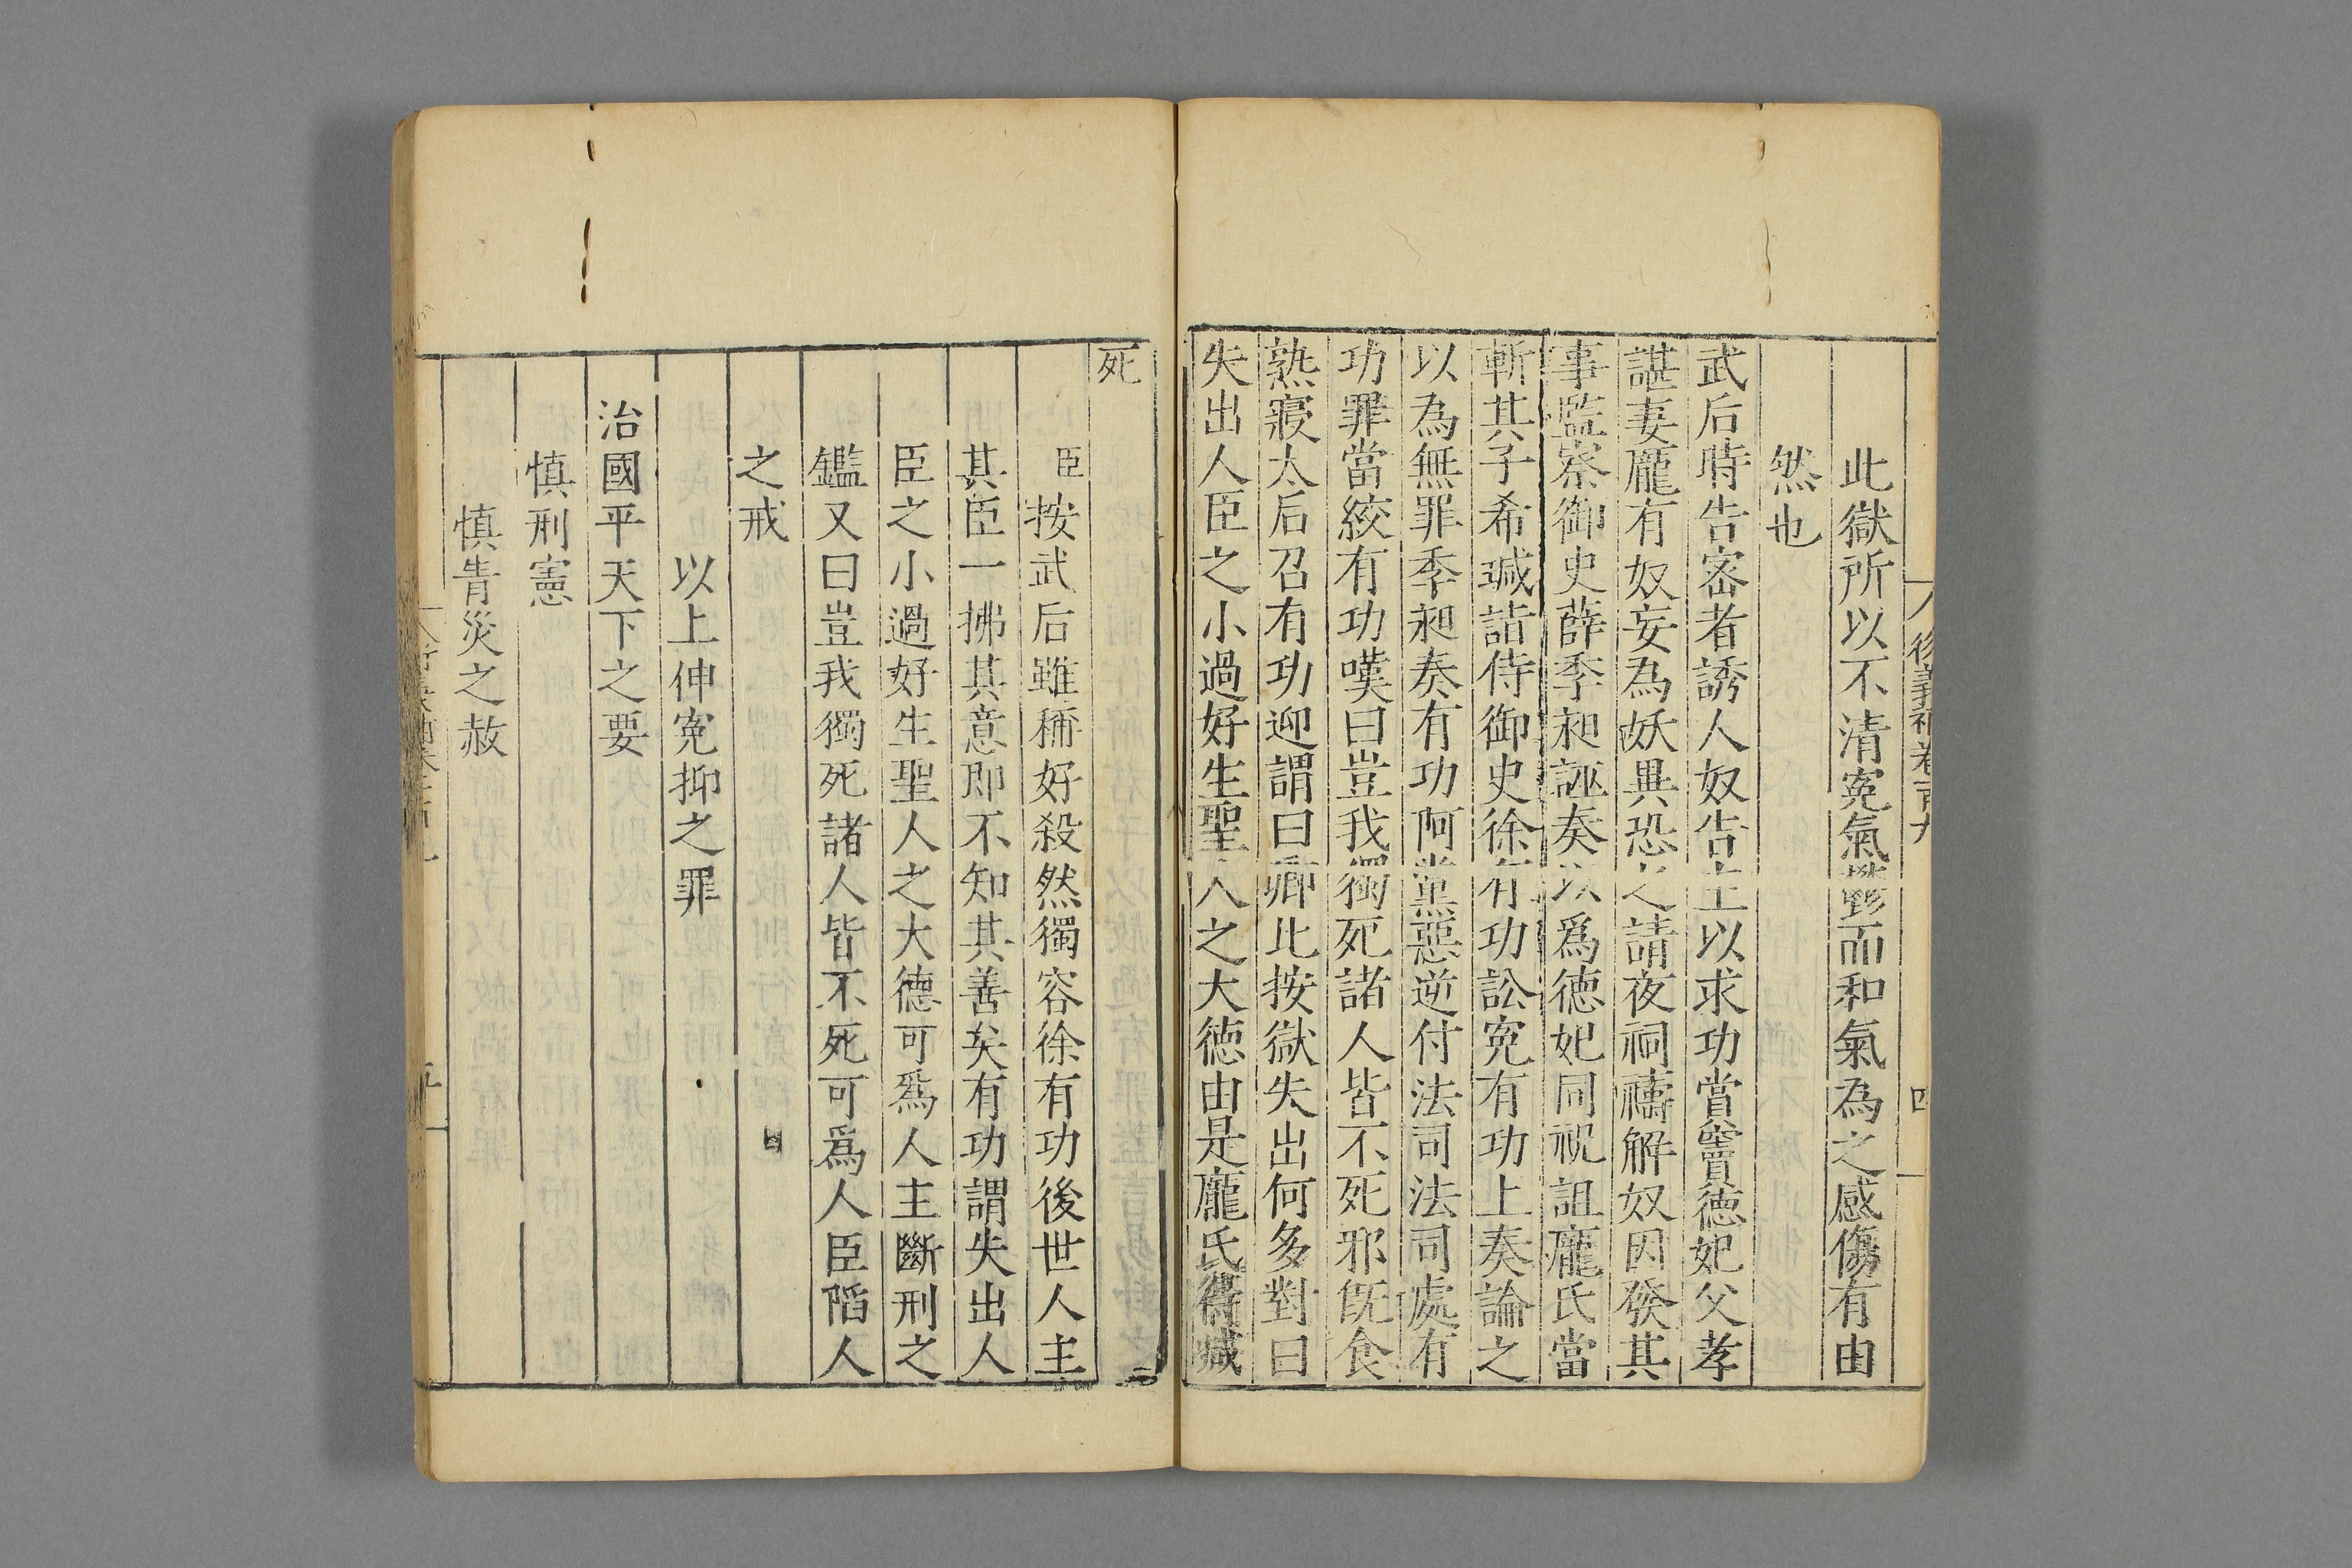 此獄所以不清寃氣鬱而和氣為之感傷有由
然也
武后時告密者誘人奴告主以求功賞竇德妃父孝
諶妻龐有奴妄為妖異恐之請夜祠禱解奴因發其
事監察御史薛季昶誣奏以爲德妃同祝詛龐氏當
斬其子希瑊詣侍御史徐有功訟寃有功上奏論之
以為無罪季昶奏有功阿黨惡逆付法司法司處有
功罪當絞有功嘆曰豈我獨死諸人皆不死邪旣食
熟寢太后召有功迎謂曰卿比按獄失出何多對曰
失出人臣之小過好生聖人之大德由是龐氏得减
死
臣按武后雖稱好殺然獨容徐有功後世人主
其臣一拂其意即不知其善矣有功謂失出人
臣之小過好生聖人之大德可爲人主斷刑之
鑑又曰豈我獨死諸人皆不死可爲人臣陷人
之戒
以上伸寃抑之罪
治國平天下之要
慎刑憲
慎眚災之赦